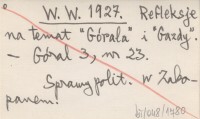 W. W. 1927. Refleksje
na temat "Górala" i "Gazdy".
- Góral 3, nr. 23.
Sprawy polit. w Zako-
panem!
bi/048/1480